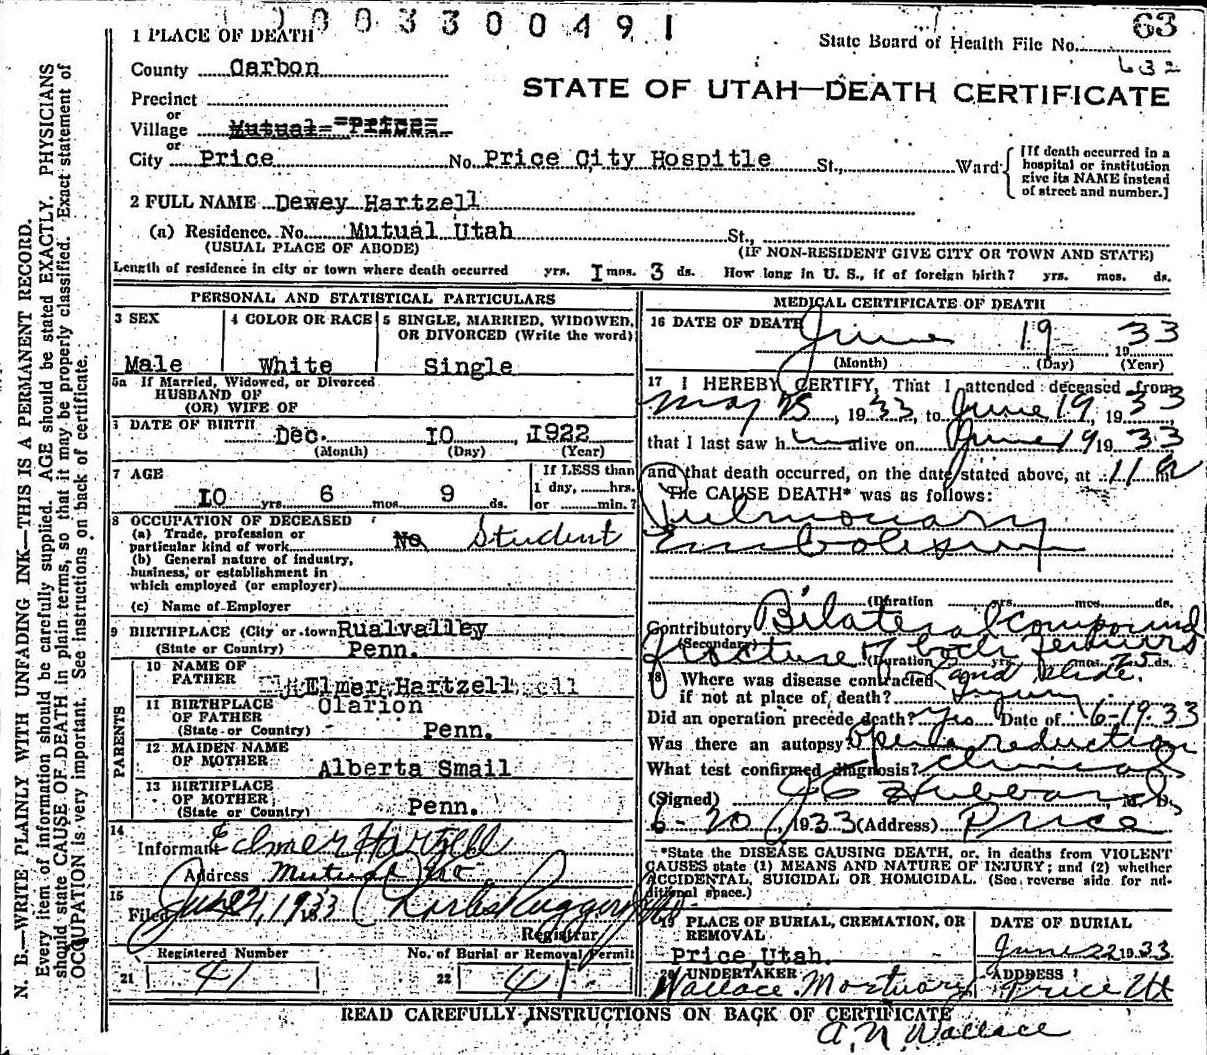 003300491
63
1 PLACE OF DEATH
State Board of Health File No.
632
County Carbon
STATE OF UTAH—DEATH CERTIFICATE
Precinct
or
Village Mutual- Price
or
City Price No. Price City Hospitle St., Ward
[If death occurred in a hospital or institution give its NAME instead of street and number.]
2 FULL NAME Dewey Hartzell
(a) Residence. No. Mutual Utah St.,
(USUAL PLACE OF ABODE) (IF NON-RESIDENT GIVE CITY OR TOWN AND STATE)
Length of residence in city or town where death occurred yrs. I mos. 3 ds. How long in U. S., if of foreign birth? yrs. mos. ds.
PERSONAL AND STATISTICAL PARTICULARS
3 SEX 4 COLOR OR RACE 5 SINGLE, MARRIED, WIDOWED, OR DIVORCED (Write the word)
Male White Single
5a If Married, Widowed, or Divorced
HUSBAND OF
(OR) WIFE OF
6 DATE OF BIRTH Dec. IO , 1922
(Month) (Day) (Year)
7 AGE If LESS than
1 day, hrs.
IO yrs. 6 mos. 9 ds. or min.?
8 OCCUPATION OF DECEASED
(a) Trade, profession or
particular kind of work No Student
(b) General nature of industry,
business, or establishment in
which employed (or employer)
(c) Name of Employer
9 BIRTHPLACE (City or town Rualvalley
(State or Country) Penn.
PARENTS
10 NAME OF
FATHER Elmer Hartzell
11 BIRTHPLACE Clarion
OF FATHER
(State or Country) Penn.
12 MAIDEN NAME
OF MOTHER Alberta Smail
13 BIRTHPLACE
OF MOTHER
(State or Country) Penn.
14
Informant Elmer Hartzell
Address Mutual
15
Filed June 21, 1933
Registrar
Registered Number No. of Burial or Removal Permit
21 41 22 41
MEDICAL CERTIFICATE OF DEATH
16 DATE OF DEATH June 19 1933
(Month) (Day) (Year)
17 I HEREBY CERTIFY, That I attended deceased from
May 25, 1933, to June 19, 1933
that I last saw him alive on June 19 1933
and that death occurred, on the date stated above, at 11 a m
The CAUSE DEATH* was as follows:
Pulmonary
Embolism
(Duration yrs. mos. ds.
Contributory Bilateral Compound
(Secondary)
fracture of both femurs
(Duration yrs. mos. 25 ds.
18 Where was disease contracted
if not at place of death? Injury
Did an operation precede death? Yes Date of 6-19-33
Was there an autopsy? Open reduction
What test confirmed diagnosis? Clinical
(Signed) Hubbard M. D.
6-20, 1933 (Address) Price
*State the DISEASE CAUSING DEATH, or, in deaths from VIOLENT
CAUSES state (1) MEANS AND NATURE OF INJURY; and (2) whether
ACCIDENTAL, SUICIDAL OR HOMICIDAL. (See reverse side for ad-
ditional space.)
19 PLACE OF BURIAL, CREMATION, OR REMOVAL DATE OF BURIAL
Price, Utah. June 22 1933
20 UNDERTAKER ADDRESS
Wallace Mortuary Price Ut
READ CAREFULLY INSTRUCTIONS ON BACK OF CERTIFICATE
A. N. Wallace
N. B.—WRITE PLAINLY WITH UNFADING INK—THIS IS A PERMANENT RECORD.
Every item of information should be carefully supplied. AGE should be stated EXACTLY. PHYSICIANS
should state CAUSE OF DEATH in plain terms, so that it may be properly classified. Exact statement of
OCCUPATION is very important. See instructions on back of certificate.